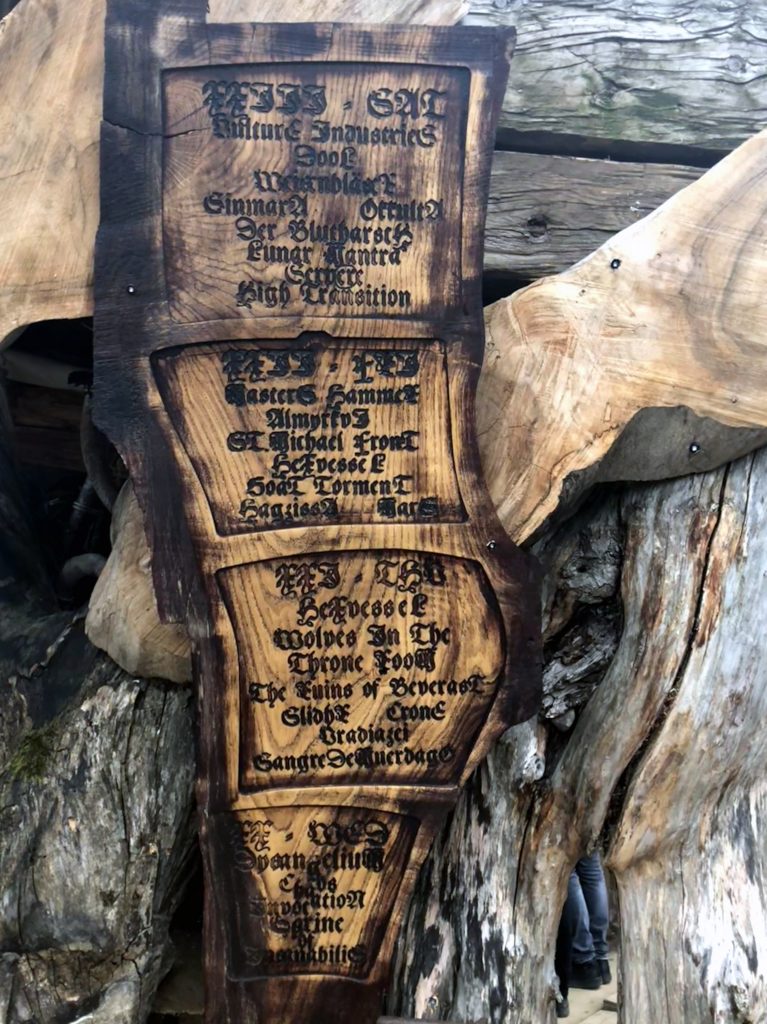 XXIII - SAT
VulturE IndustrieS
DooL
SinmarA OccultA
Der BlutharscH
Lunar Mantra
Serpere
High Transition
XXII - FRI
MasterS HammeR
AlmyrkvI
ST. Michael FronT
HeXvesseL
GoaT TormenT
HagzissA MarS
XXI - THU
HeXvesseL
Wolves In The
Throne RooM
The Ruins of BeverasT
SlidhR CronE
Vradiazei
SangreDeMuerdagO
XX - WED
DysangeliuM
Chaos
InvocatioN